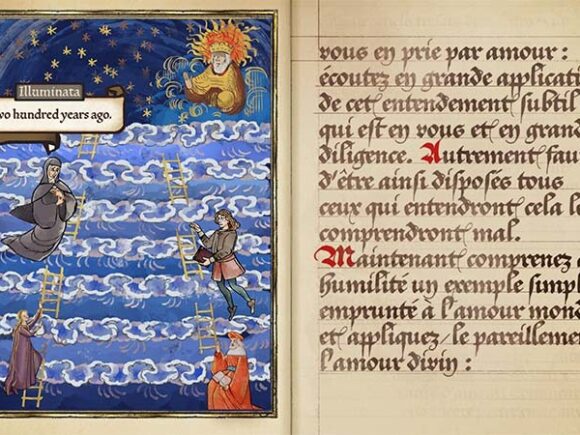 Illuminata
wo hundred years ago.
vous en prie par amour :
écoutez en grande applicati
de cet entendement subtil
qui est en vous et en grand
diligence. Autrement fau
d'être ainsi disposés tous
ceux qui entendront cela l
comprendront mal.
Maintenant comprenez a
humilité un exemple simpl
emprunté à l'amour mon
et appliquez-le pareillemen
l'amour divin :